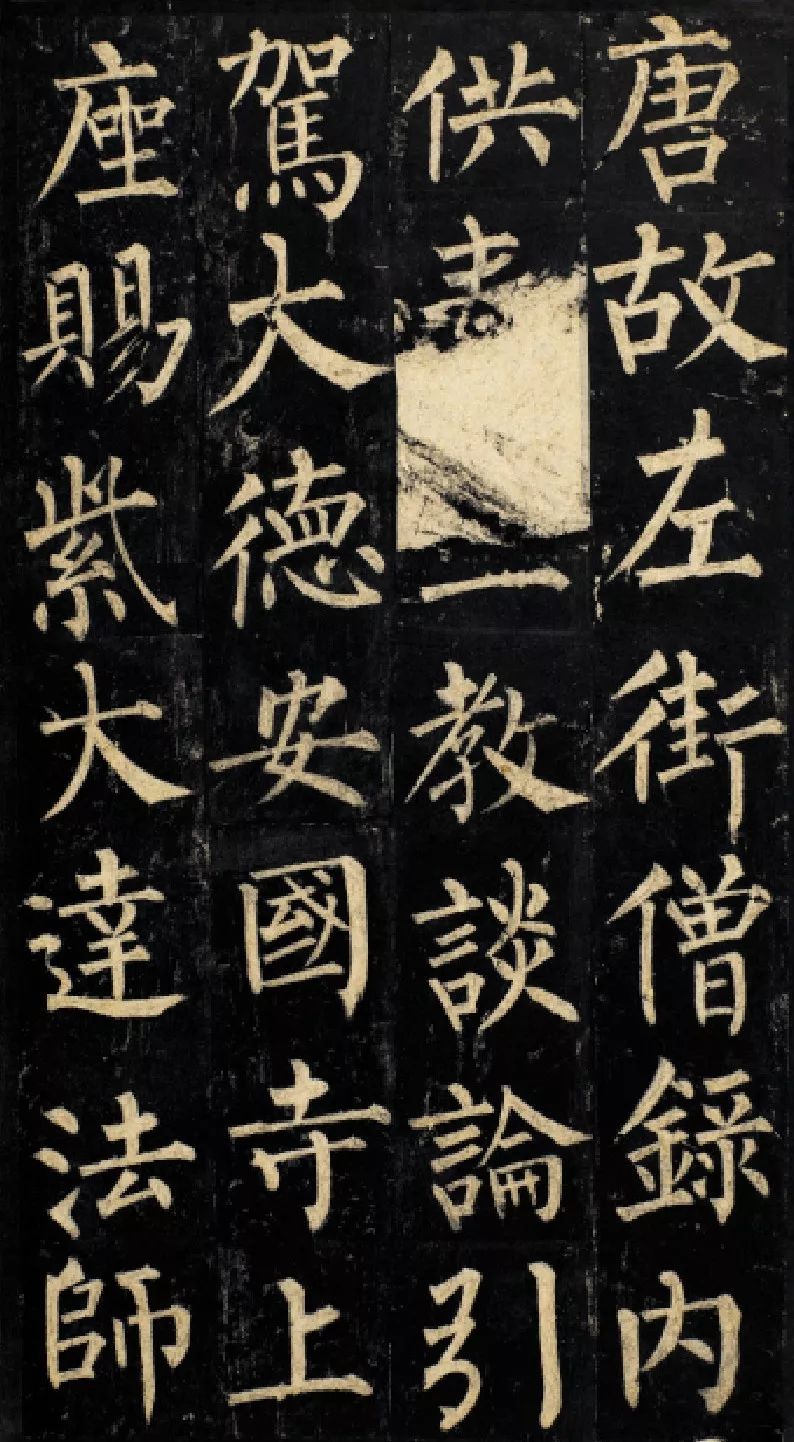 唐故左街僧錄内
供教談論引
駕大徳安國寺上
座賜紫大達法師